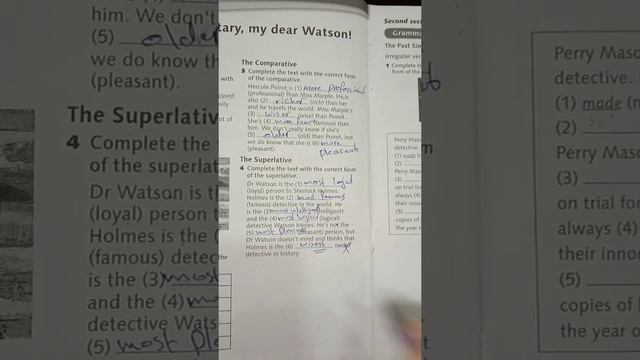 tary, my dear Watson!
The Comparative
3 Complete the text with the correct form
of the comparative.
Hercule Poirot is (1) more professional
(professional) than Miss Marple. He is
also (2) richer (rich) than her
and he travels the world. Miss Marple's
(3) wiser (wise) than Poirot.
She's (4) more famous (famous) than
him. We don't really know if she's
(5) older (old) than Poirot, but
we do know that she is (6) more
(pleasant). pleasant
The Superlative
4 Complete the text with the correct form
of the superlative.
Dr Watson is the (1) most loyal
(loyal) person to Sherlock Holmes.
Holmes is the (2) most famous
(famous) detective in the world. He
is the (3) most intelligent (intelligent)
and the (4) most logical (logical)
detective Watson knows. He's not the
(5) most pleasant (pleasant) person, but
Dr Watson doesn't mind and thinks that
Holmes is the (6) wisest (wise)
detective in history.
Second sect
Gramma
The Past Sim
irregular ver
1 Complete t
form of the
Perry Maso
detective.
(1) made
(2)
Perry Maso
(3)
on trial for
always (4)
their innoc
(5)
copies of
the year o
him. We don't
(5) older
we do know th
(pleasant).
The Superlativ
4 Complete the t
of the superlat
Dr Watson is the
(loyal) person to
Holmes is the (2
(famous) detect
is the (3) most
and the (4) mo
detective Wats
(5) most ple
Perry Maso
detective.
(1) made (m
(2)
Perry Maso
(3)
on trial for
always (4)
their innoc
(5)
copies of
the year o